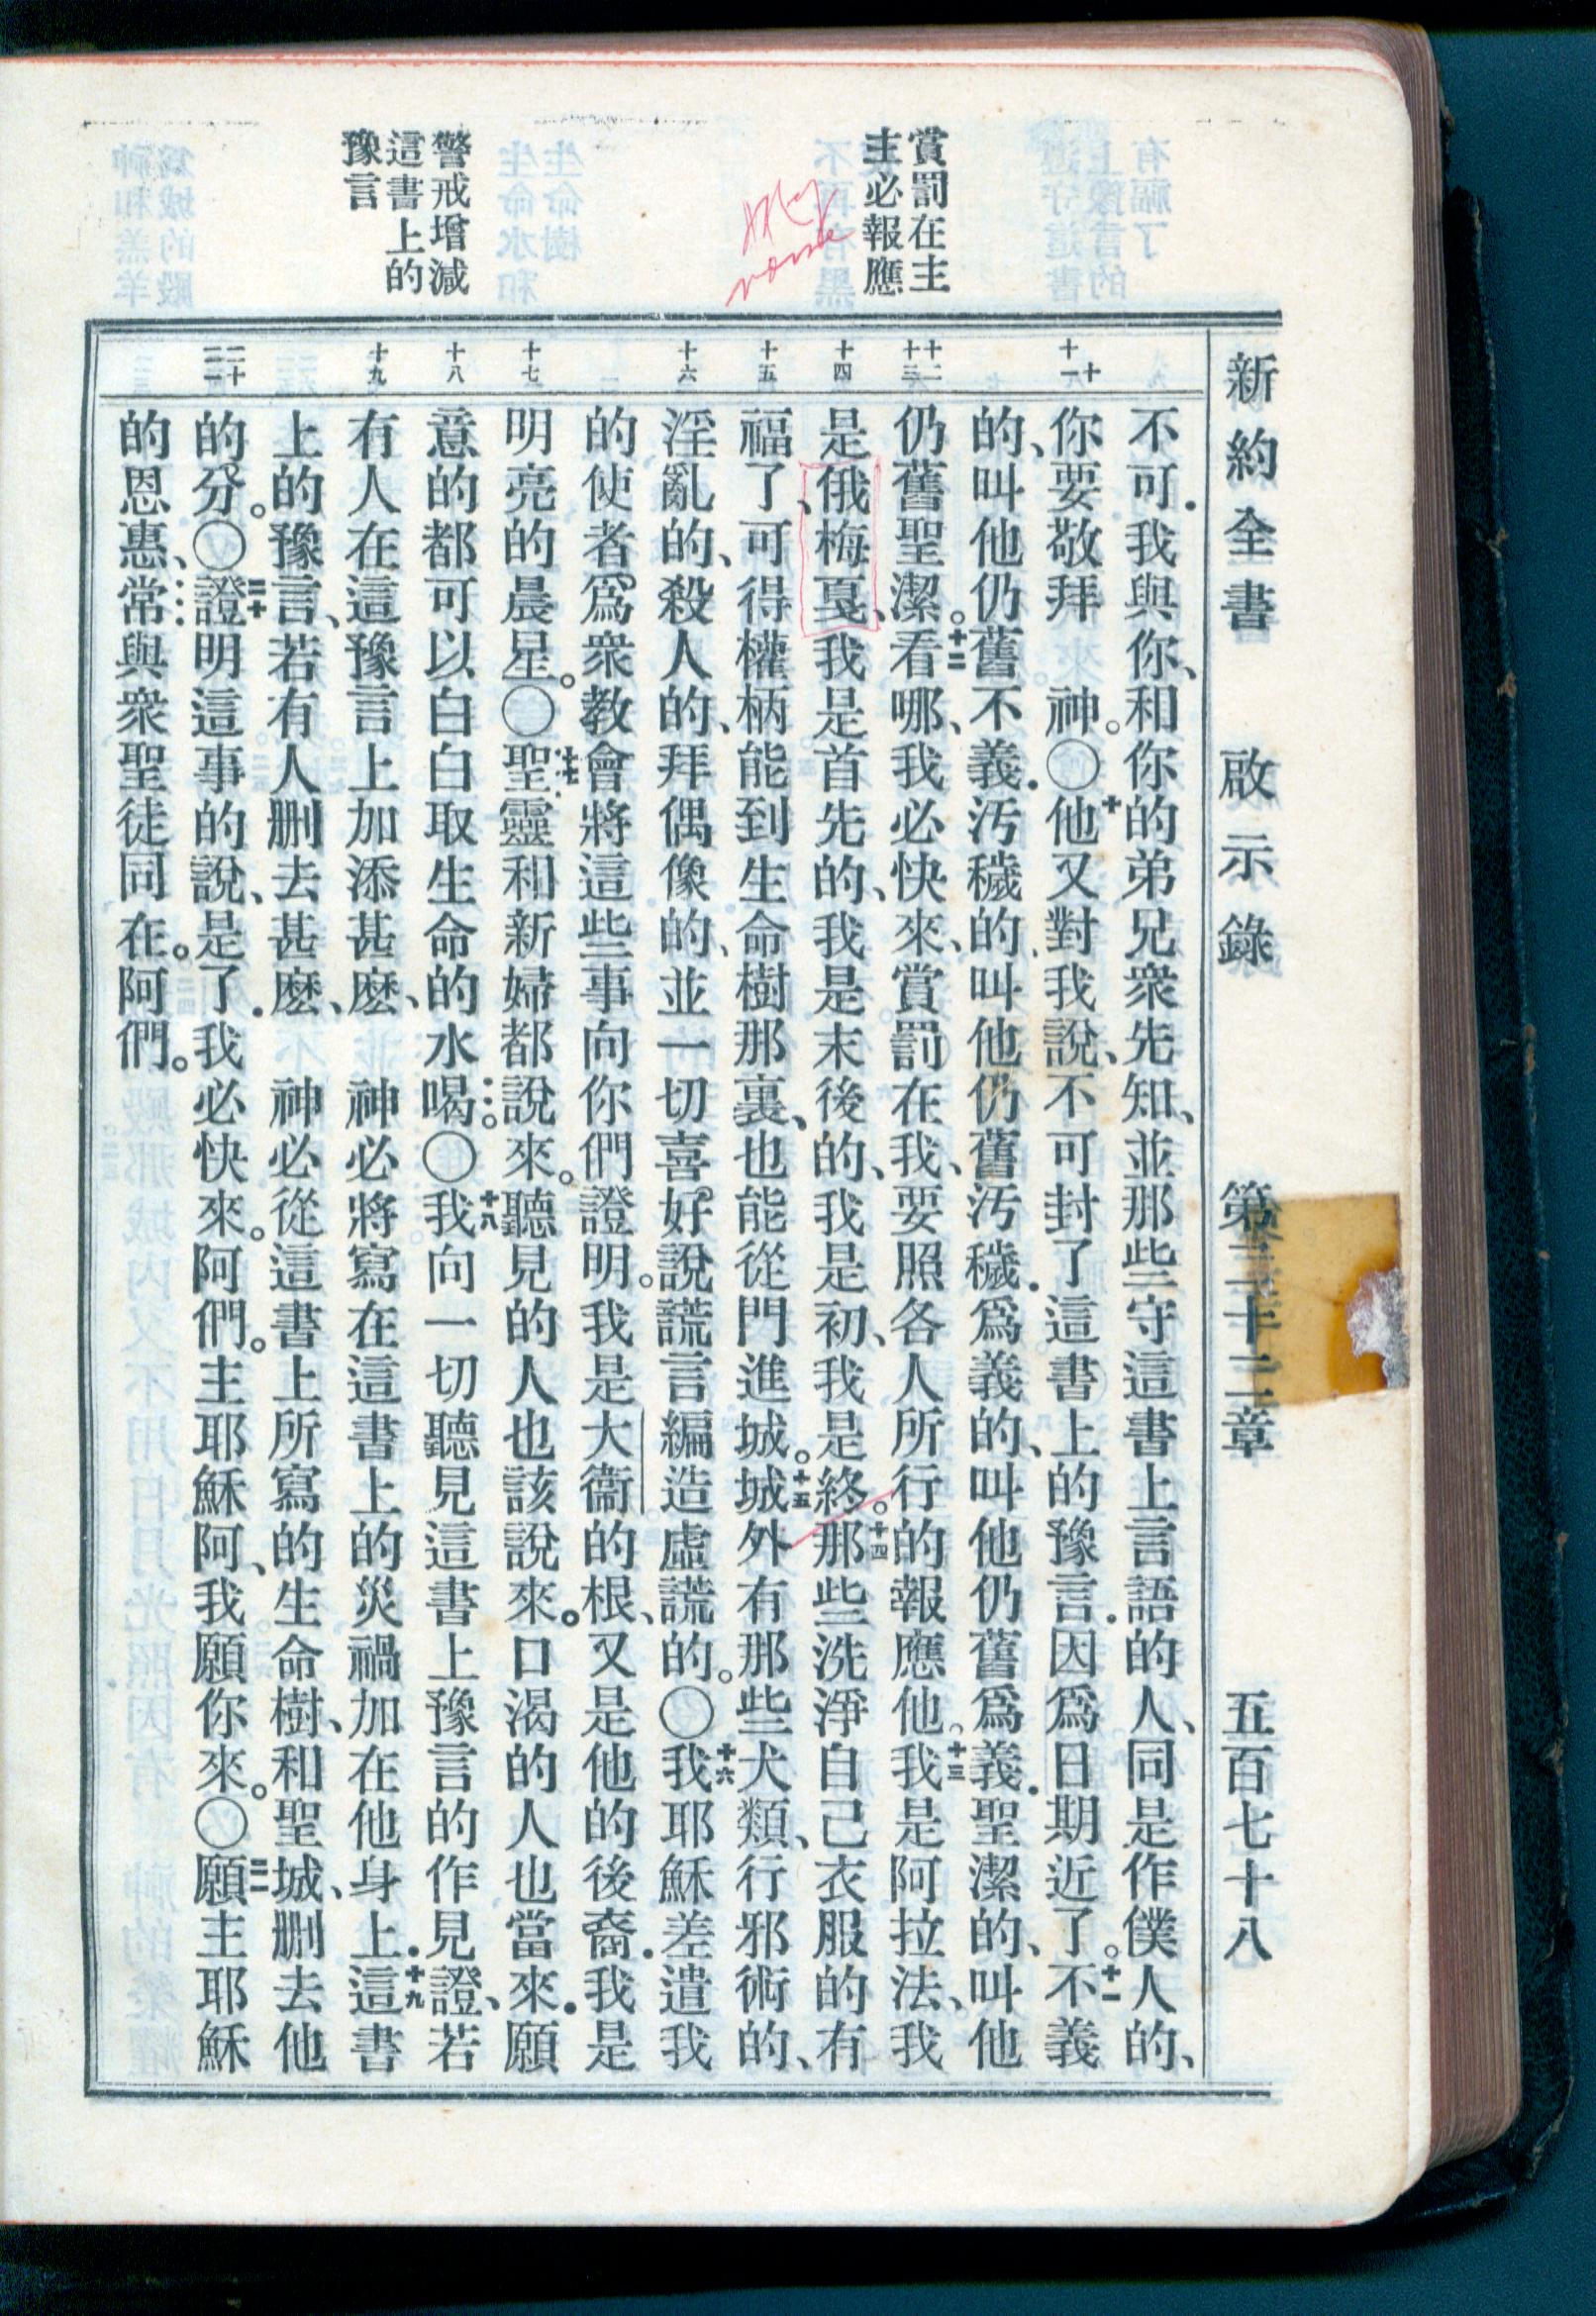 賞罰在主
主必報應
警戒增減
這書上的
豫言
新約全書 啟示錄 第二十二章 五百七十八
十
十一
十二
十三
十四
十五
十六
十七
十八
十九
二十
二一
不可.我與你、和你的弟兄衆先知、並那些守這書上言語的人、同是作僕人的、
你要敬拜 神。〇十他又對我說、不可封了這書上的豫言.因爲日期近了。十一不義
的、叫他仍舊不義.汚穢的、叫他仍舊汚穢.爲義的、叫他仍舊爲義.聖潔的、叫他
仍舊聖潔。十二看哪、我必快來、賞罰在我、要照各人所行的報應他。十三我是阿拉法、我
是俄梅戛、我是首先的、我是末後的、我是初、我是終。十四那些洗淨自己衣服的有
福了、可得權柄能到生命樹那裏、也能從門進城。十五城外有那些犬類、行邪術的、
淫亂的、殺人的、拜偶像的、並一切喜好說謊言編造虛謊的。〇十六我耶穌差遣我
的使者爲衆教會將這些事向你們證明。我是大衞的根、又是他的後裔.我是
明亮的晨星。〇十七聖靈和新婦都說來。聽見的人也該說來。口渴的人也當來.願
意的都可以白白取生命的水喝。〇十八我向一切聽見這書上豫言的作見證、若
有人在這豫言上加添甚麽、 神必將寫在這書上的災禍加在他身上.十九這書
上的豫言、若有人删去甚麽、 神必從這書上所寫的生命樹、和聖城、删去他
的分。〇二十證明這事的說、是了.我必快來。阿們。主耶穌阿、我願你來。〇二一願主耶穌
的恩惠、常與衆聖徒同在。阿們。